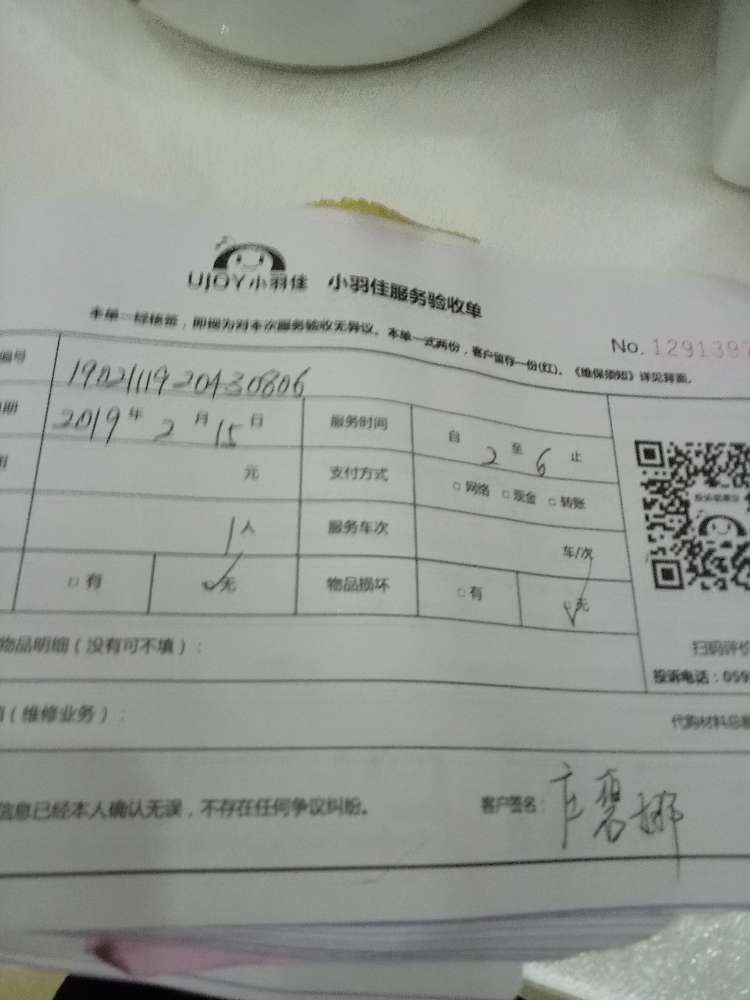 UJOY小羽佳 小羽佳服务验收单
本单一经核签，即视为对本次服务验收无异议。本单一式两份，客户留存一份(红)。《维保须知》详见背面。
No. 1291397
编号 1902111920430806
期 2019年2月15日 服务时间 自2至6止
用 元 支付方式 □网络 □现金 □转账
1人 服务车次 车/次
□有 ☑无 物品损坏 □有 ☑无
物品明细（没有可不填）：
扫码评价
投诉电话：059
（维修业务）：
代购材料总
信息已经本人确认无误，不存在任何争议纠纷。 客户签名：庄碧娜